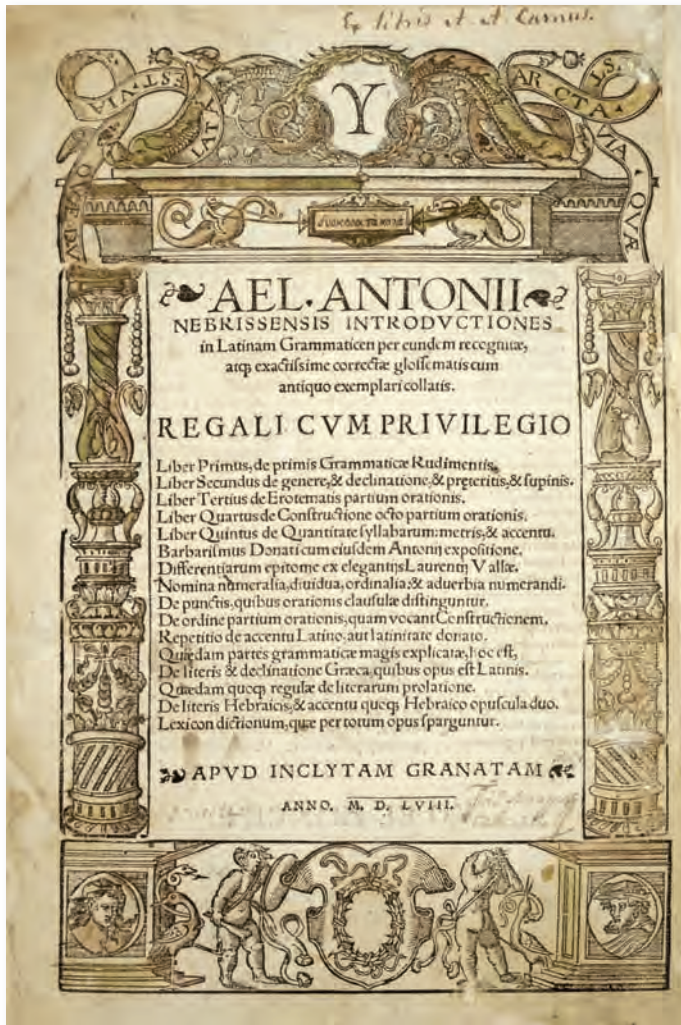 Ex libris
EST · VIA
LATA
QVÆ DV
Y
ARCTA
EST
VIA · QVÆ
AEL. ANTONII
NEBRISSENSIS INTRODVCTIONES
in Latinam Grammaticen per eundem recognitæ,
atq; exactissime correctæ glossematis cum
antiquo exemplari collatis.
REGALI CVM PRIVILEGIO
Liber Primus, de primis Grammaticæ Rudimentis.
Liber Secundus de genere, & declinatione, & pręteritis, & supinis.
Liber Tertius de Erotematis partium orationis.
Liber Quartus de Constructione octo partium orationis.
Liber Quintus de Quantitate syllabarum: metris, & accentu.
Barbarismus Donati cum eiusdem Antonij expositione.
Differentiarum epitome ex elegantijs Laurentij Vallæ.
Nomina numeralia, diuidua, ordinalia: & aduerbia numerandi.
De punctis, quibus orationis clausulæ distinguntur.
De ordine partium orationis, quam vocant Constructionem.
Repetitio de accentu Latino, aut latinitate donato.
Quædam partes grammaticæ magis explicatæ, hoc est,
De literis & declinatione Græca, quibus opus est Latinis.
Quædam quoq; regulæ de literarum prolatione.
De literis Hebraicis, & accentu quoq; Hebraico opuscula duo.
Lexicon dictionum, quæ per totum opus sparguntur.
APVD INCLYTAM GRANATAM
ANNO. M. D. LVIII.